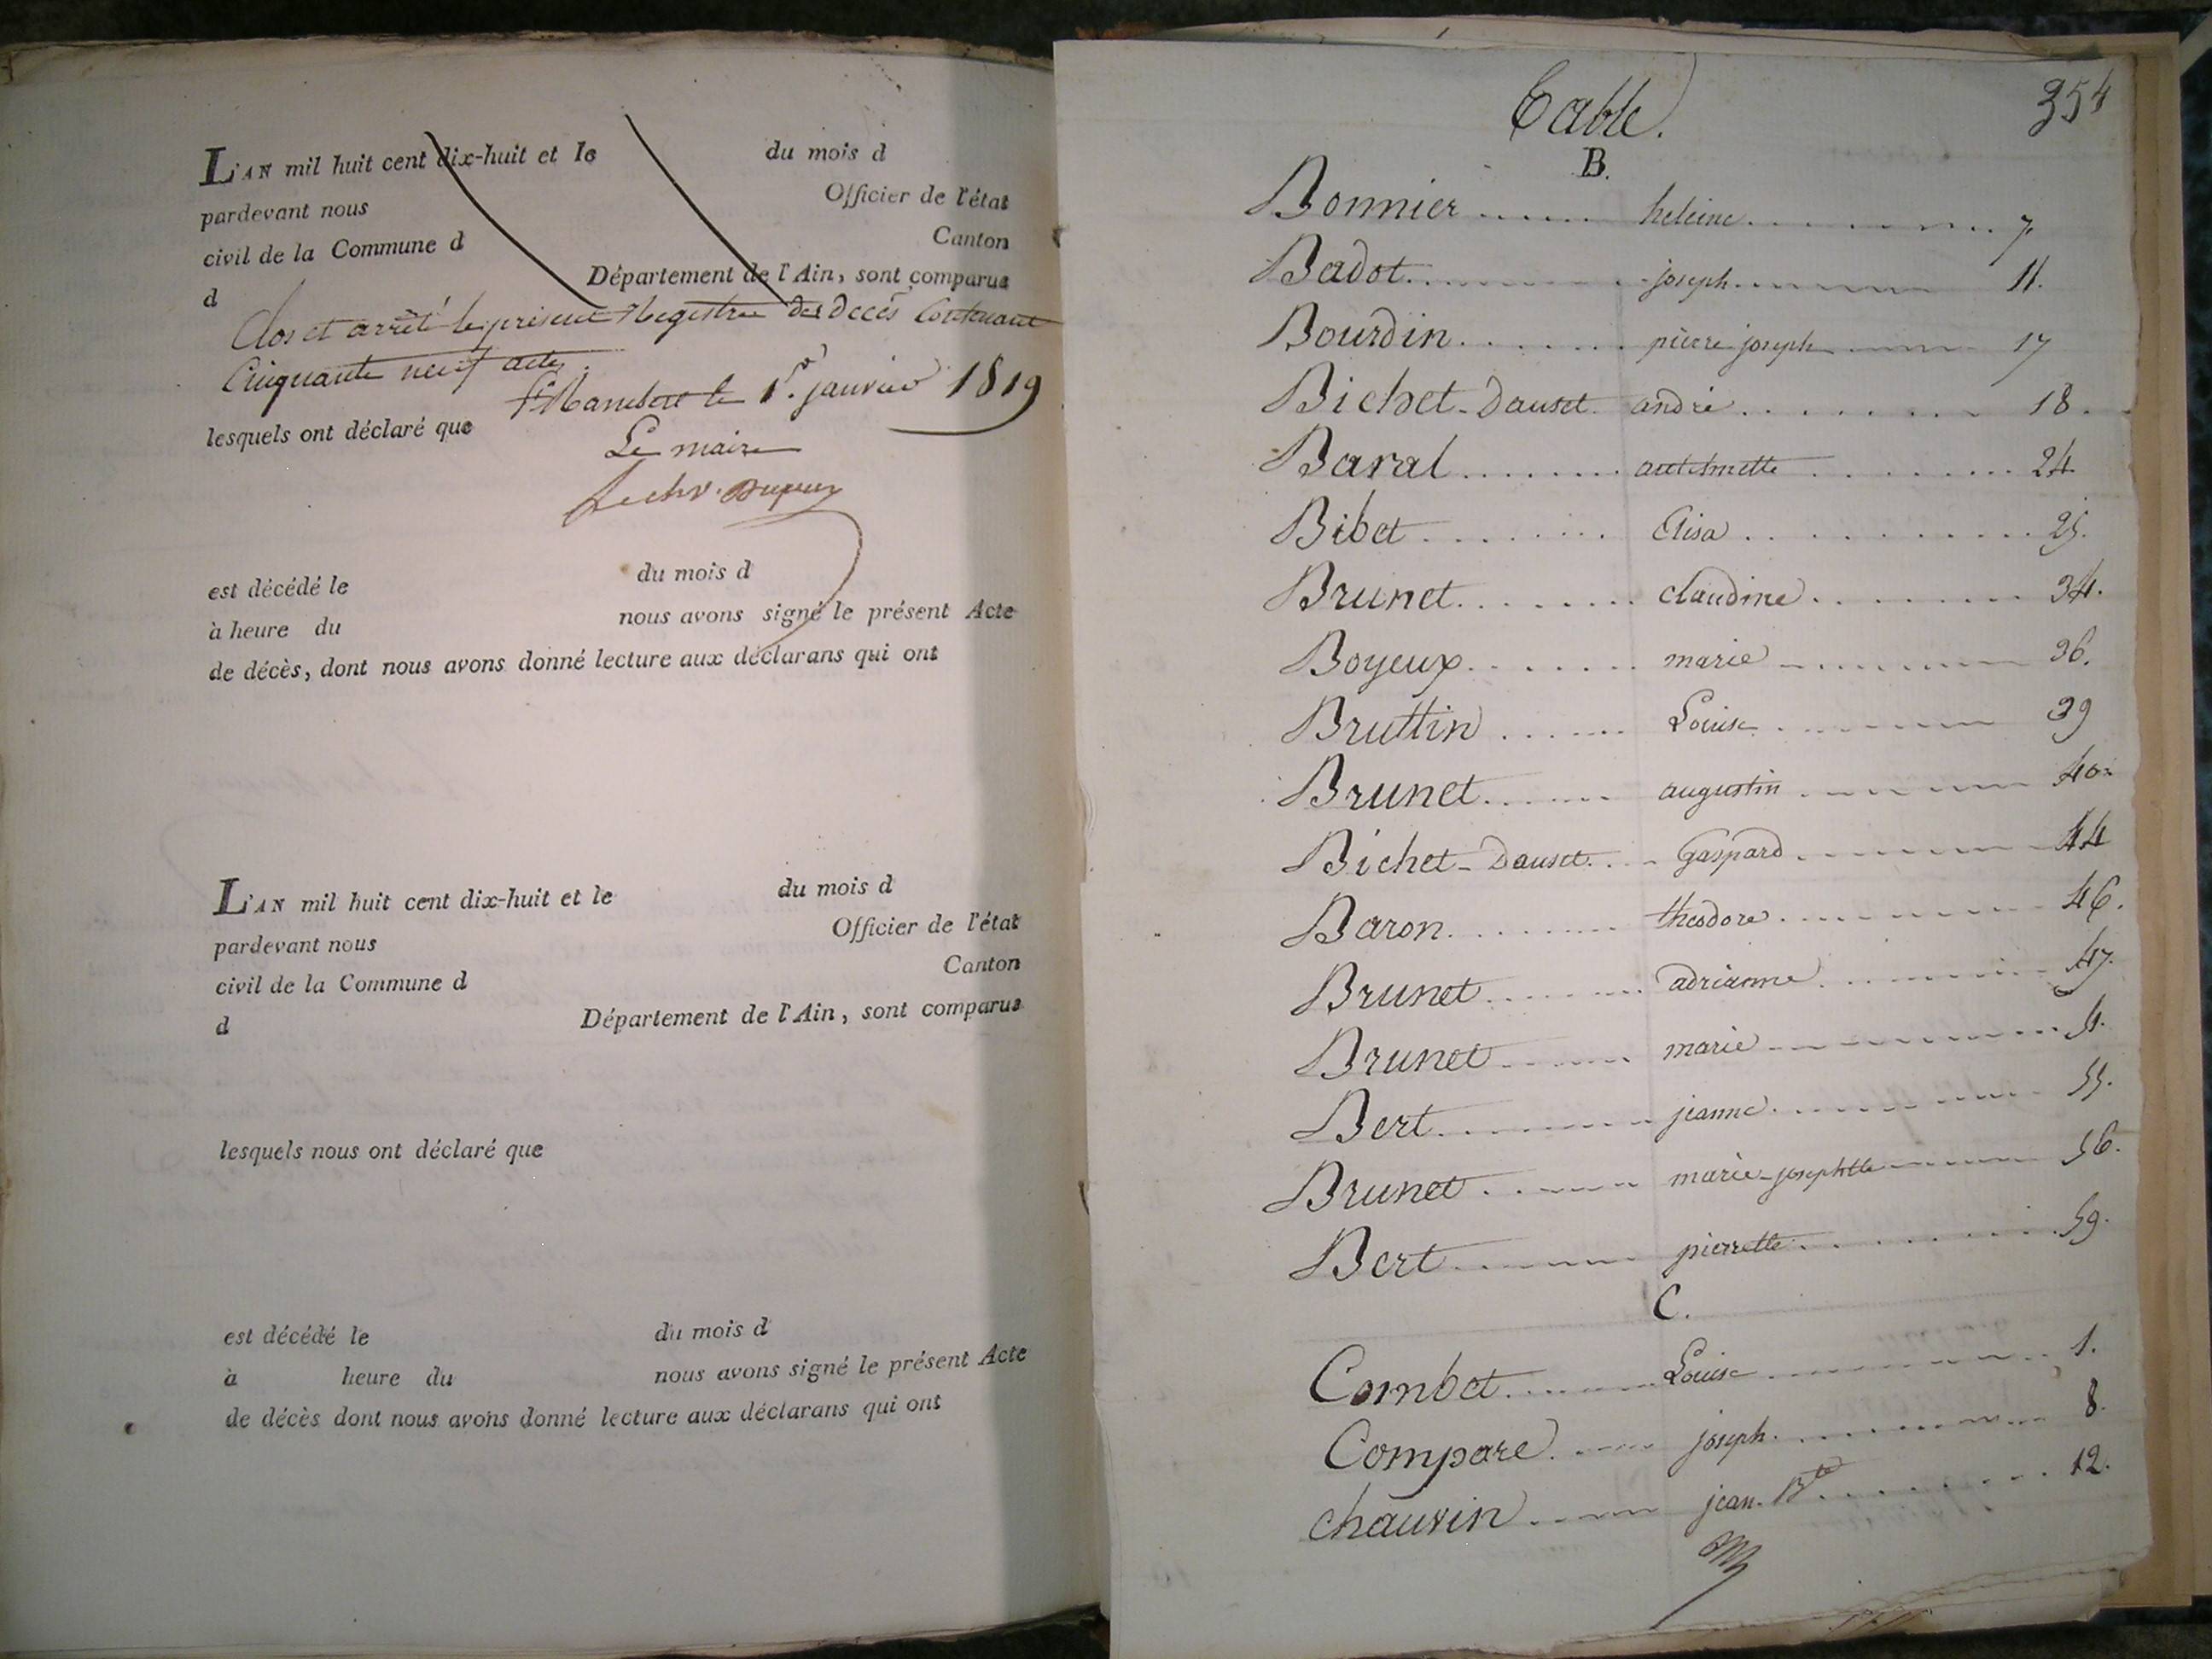 L'AN mil huit cent dix-huit et le du mois d
pardevant nous Officier de l'état
civil de la Commune d Canton
d Département de l'Ain, sont comparus
Clos et arrêté le présent Registre des décès Contenant
Cinquante neuf actes.
St Rambert le 1er. janvier 1819
lesquels ont déclaré que
Le maire
est décédé le du mois d
à heure du nous avons signé le présent Acte
de décès, dont nous avons donné lecture aux déclarans qui ont
L'AN mil huit cent dix-huit et le du mois d
pardevant nous Officier de l'état
civil de la Commune d Canton
d Département de l'Ain, sont comparus
lesquels nous ont déclaré que
est décédé le du mois d
à heure du nous avons signé le présent Acte
de décès dont nous avons donné lecture aux déclarans qui ont
354
Table.
B.
Bonnier ...... heleine ........ 7.
Badot ........ joseph ........ 11.
Bourdin ....... pierre joseph ........ 17
Bichet-Dauset. andré ........ 18.
Baral ........ anthelmette ........ 24
Bibet ........ Elisa ........ 25.
Brunet ........ claudine ........ 34.
Boyeux ........ marie ........ 36.
Bruttin ...... Louise ........ 39
Brunet ....... augustin ........ 40.
Bichet-Dauset ... Gaspard ........ 44
Baron ........ theodore ........ 46.
Brunet ....... adrianne ........ 47.
Brunet ....... marie ........ 51.
Bert ........ jeanne ........ 55.
Brunet ....... marie-josephtte ........ 56.
Bert ........ pierrette ........ 59.
C.
Combet ........ Louise ........ 1.
Compare ...... joseph ........ 8.
chauvin ...... jean. Bte ........ 12.